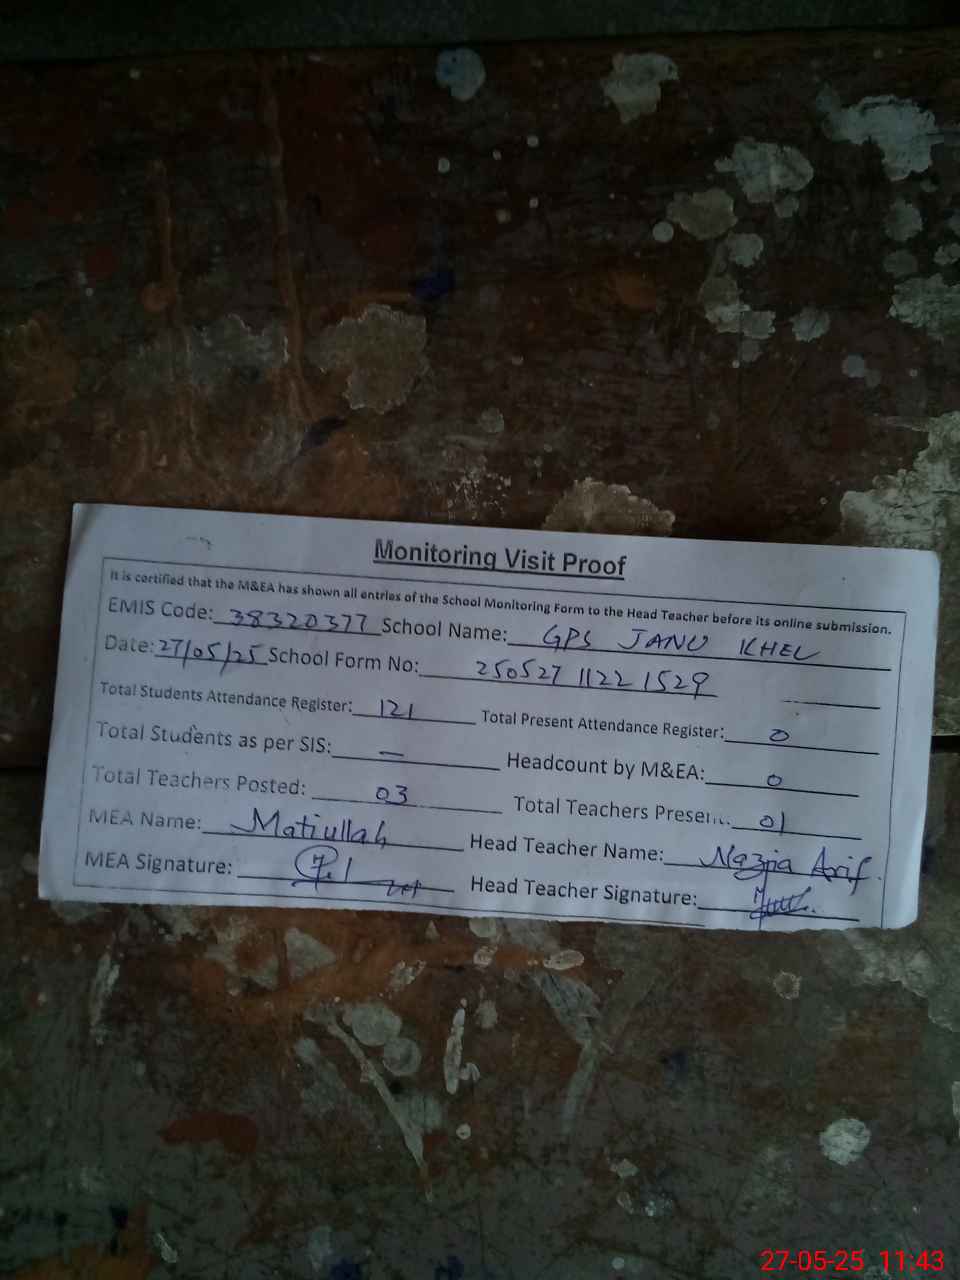 Monitoring Visit Proof
It is certified that the M&EA has shown all entries of the School Monitoring Form to the Head Teacher before its online submission.
EMIS Code: 38320377 School Name: GPS JANU KHEL
Date: 27/05/25 School Form No: 250527 1122 1529
Total Students Attendance Register: 121 Total Present Attendance Register: 0
Total Students as per SIS: — Headcount by M&EA: 0
Total Teachers Posted: 03 Total Teachers Present: 01
MEA Name: Matiullah Head Teacher Name: Nazia Arif.
MEA Signature: Head Teacher Signature:
27-05-25 11:43